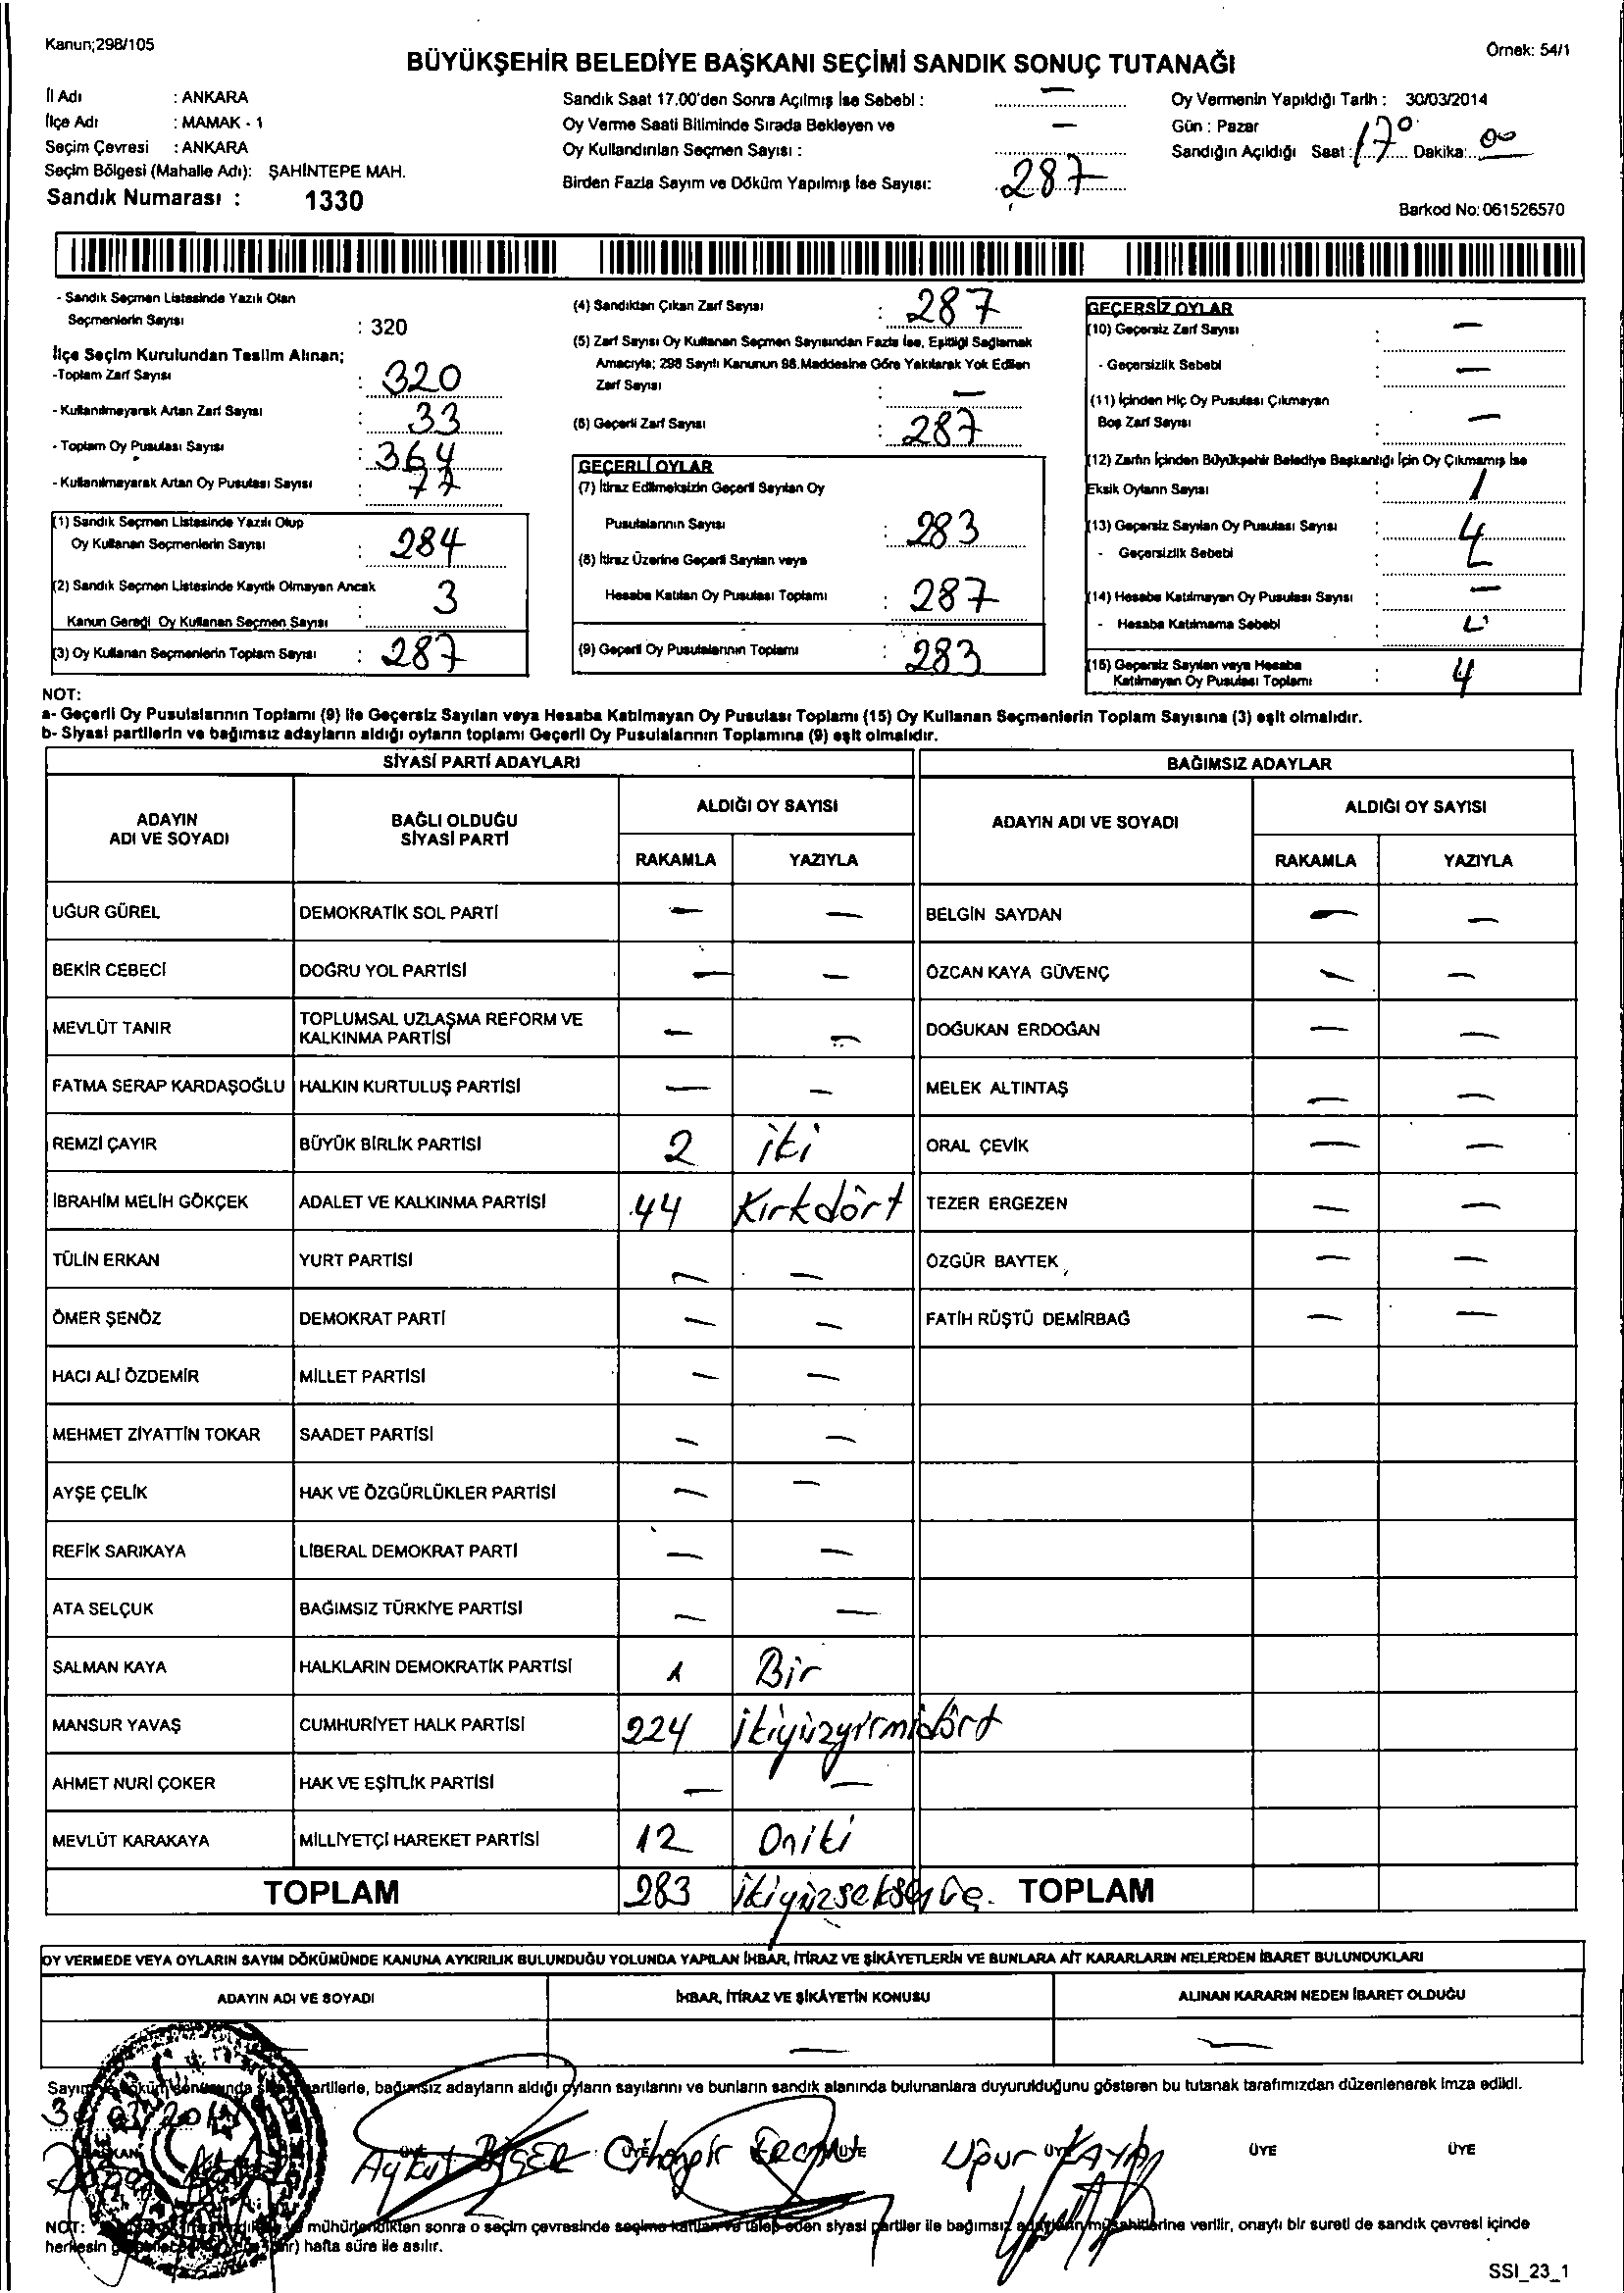 Kanun;298/105
Örnek: 54/1
BÜYÜKŞEHİR BELEDİYE BAŞKANI SEÇİMİ SANDIK SONUÇ TUTANAĞI
İl Adı : ANKARA
İlçe Adı : MAMAK - 1
Seçim Çevresi : ANKARA
Seçim Bölgesi (Mahalle Adı): ŞAHİNTEPE MAH.
Sandık Numarası : 1330
Sandık Saat 17.00'den Sonra Açılmış İse Sebebi : —
Oy Verme Saati Bitiminde Sırada Bekleyen ve
Oy Kullandırılan Seçmen Sayısı : —
Birden Fazla Sayım ve Döküm Yapılmış İse Sayısı: 287
Oy Vermenin Yapıldığı Tarih : 30/03/2014
Gün : Pazar
Sandığın Açıldığı Saat : 17 Dakika: 00
Barkod No: 061526570
- Sandık Seçmen Listesinde Yazılı Olan
Seçmenlerin Sayısı : 320
İlçe Seçim Kurulundan Teslim Alınan;
-Toplam Zarf Sayısı : 320
- Kullanılmayarak Artan Zarf Sayısı : 33
- Toplam Oy Pusulası Sayısı : 364
- Kullanılmayarak Artan Oy Pusulası Sayısı : 77
(1) Sandık Seçmen Listesinde Yazılı Olup
Oy Kullanan Seçmenlerin Sayısı : 284
(2) Sandık Seçmen Listesinde Kayıtlı Olmayan Ancak
Kanun Gereği Oy Kullanan Seçmen Sayısı : 3
(3) Oy Kullanan Seçmenlerin Toplam Sayısı : 287
(4) Sandıktan Çıkan Zarf Sayısı : 287
(5) Zarf Sayısı Oy Kullanan Seçmen Sayısından Fazla İse, Eşitliği Sağlamak
Amacıyla; 298 Sayılı Kanunun 98.Maddesine Göre Yakılarak Yok Edilen
Zarf Sayısı : —
(6) Geçerli Zarf Sayısı : 287
GEÇERLİ OYLAR
(7) İtiraz Edilmeksizin Geçerli Sayılan Oy
Pusulalarının Sayısı : 283
(8) İtiraz Üzerine Geçerli Sayılan veya
Hesaba Katılan Oy Pusulası Toplamı : 287
(9) Geçerli Oy Pusulalarının Toplamı : 283
GEÇERSİZ OYLAR
(10) Geçersiz Zarf Sayısı : —
- Geçersizlik Sebebi : —
(11) İçinden Hiç Oy Pusulası Çıkmayan
Boş Zarf Sayısı : —
(12) Zarfın İçinden Büyükşehir Belediye Başkanlığı İçin Oy Çıkmamış İse
Eksik Oyların Sayısı : 1
(13) Geçersiz Sayılan Oy Pusulası Sayısı : 4
- Geçersizlik Sebebi :
(14) Hesaba Katılmayan Oy Pusulası Sayısı : —
- Hesaba Katılmama Sebebi :
(15) Geçersiz Sayılan veya Hesaba
Katılmayan Oy Pusulası Toplamı : 4
NOT:
a- Geçerli Oy Pusulalarının Toplamı (9) ile Geçersiz Sayılan veya Hesaba Katılmayan Oy Pusulası Toplamı (15) Oy Kullanan Seçmenlerin Toplam Sayısına (3) eşit olmalıdır.
b- Siyasi partilerin ve bağımsız adayların aldığı oyların toplamı Geçerli Oy Pusulalarının Toplamına (9) eşit olmalıdır.
SİYASİ PARTİ ADAYLARI BAĞIMSIZ ADAYLAR
ADAYIN ADI VE SOYADI BAĞLI OLDUĞU SİYASİ PARTİ ALDIĞI OY SAYISI ADAYIN ADI VE SOYADI ALDIĞI OY SAYISI
RAKAMLA YAZIYLA RAKAMLA YAZIYLA
UĞUR GÜREL DEMOKRATİK SOL PARTİ — — BELGİN SAYDAN — —
BEKİR CEBECİ DOĞRU YOL PARTİSİ — — ÖZCAN KAYA GÜVENÇ — —
MEVLÜT TANIR TOPLUMSAL UZLAŞMA REFORM VE KALKINMA PARTİSİ — — DOĞUKAN ERDOĞAN — —
FATMA SERAP KARDAŞOĞLU HALKIN KURTULUŞ PARTİSİ — — MELEK ALTINTAŞ — —
REMZİ ÇAYIR BÜYÜK BİRLİK PARTİSİ 2 iki ORAL ÇEVİK — —
İBRAHİM MELİH GÖKÇEK ADALET VE KALKINMA PARTİSİ 44 Kırkdört TEZER ERGEZEN — —
TÜLİN ERKAN YURT PARTİSİ — — ÖZGÜR BAYTEK — —
ÖMER ŞENÖZ DEMOKRAT PARTİ — — FATİH RÜŞTÜ DEMİRBAĞ — —
HACI ALİ ÖZDEMİR MİLLET PARTİSİ — —
MEHMET ZİYATTİN TOKAR SAADET PARTİSİ — —
AYŞE ÇELİK HAK VE ÖZGÜRLÜKLER PARTİSİ — —
REFİK SARIKAYA LİBERAL DEMOKRAT PARTİ — —
ATA SELÇUK BAĞIMSIZ TÜRKİYE PARTİSİ — —
SALMAN KAYA HALKLARIN DEMOKRATİK PARTİSİ 1 Bir
MANSUR YAVAŞ CUMHURİYET HALK PARTİSİ 224 ikiyüzyirmidört
AHMET NURİ ÇOKER HAK VE EŞİTLİK PARTİSİ — —
MEVLÜT KARAKAYA MİLLİYETÇİ HAREKET PARTİSİ 12 Oniki
TOPLAM 283 ikiyüzseksenüç. TOPLAM
OY VERMEDE VEYA OYLARIN SAYIM DÖKÜMÜNDE KANUNA AYKIRILIK BULUNDUĞU YOLUNDA YAPILAN İHBAR, İTİRAZ VE ŞİKÂYETLERİN VE BUNLARA AİT KARARLARIN NELERDEN İBARET BULUNDUKLARI
ADAYIN ADI VE SOYADI İHBAR, İTİRAZ VE ŞİKÂYETİN KONUSU ALINAN KARARIN NEDEN İBARET OLDUĞU
— —
Sayım ve döküm sonucunda partilerle, bağımsız adayların aldığı oyların sayılarını ve bunların sandık alanında bulunanlara duyurulduğunu gösteren bu tutanak tarafımızdan düzenlenerek imza edildi.
BAŞKAN ÜYE ÜYE ÜYE ÜYE ÜYE ÜYE
Aykut Uğur KAYA
NOT: mühürlendikten sonra o seçim çevresinde seçime katılan ve talep eden siyasi partiler ile bağımsız adayların müşahitlerine verilir, onaylı bir sureti de sandık çevresi içinde
herkesin hafta süre ile asılır.
SSI_23_1